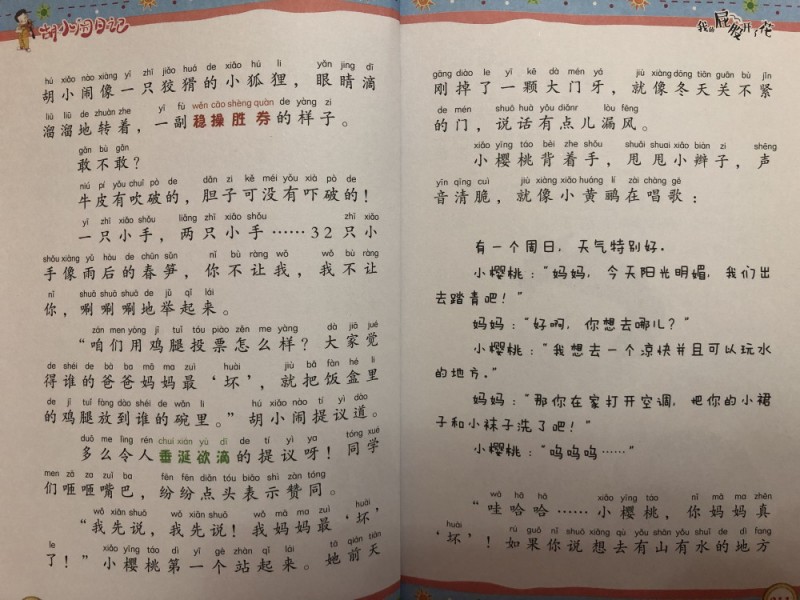 胡小闹日记
胡小闹像一只狡猾的小狐狸，眼睛滴
溜溜地转着，一副稳操胜券的样子。
敢不敢？
牛皮有吹破的，胆子可没有吓破的！
一只小手，两只小手……32只小
手像雨后的春笋，你不让我，我不让
你，唰唰唰地举起来。
“咱们用鸡腿投票怎么样？大家觉
得谁的爸爸妈妈最‘坏’，就把饭盒里
的鸡腿放到谁的碗里。”胡小闹提议道。
多么令人垂涎欲滴的提议呀！同学
们咂咂嘴巴，纷纷点头表示赞同。
“我先说，我先说！我妈妈最‘坏’
了！”小樱桃第一个站起来。她前天
我的屁股开了花
刚掉了一颗大门牙，就像冬天关不紧
的门，说话有点儿漏风。
小樱桃背着手，甩甩小辫子，声
音清脆，就像小黄鹂在唱歌：
有一个周日，天气特别好。
小樱桃：“妈妈，今天阳光明媚，我们出
去踏青吧！”
妈妈：“好啊，你想去哪儿？”
小樱桃：“我想去一个凉快并且可以玩水
的地方。”
妈妈：“那你在家打开空调，把你的小裙
子和小袜子洗了吧！”
小樱桃：“呜呜呜……”
“哇哈哈……小樱桃，你妈妈真
‘坏’！如果你说想去有山有水的地方